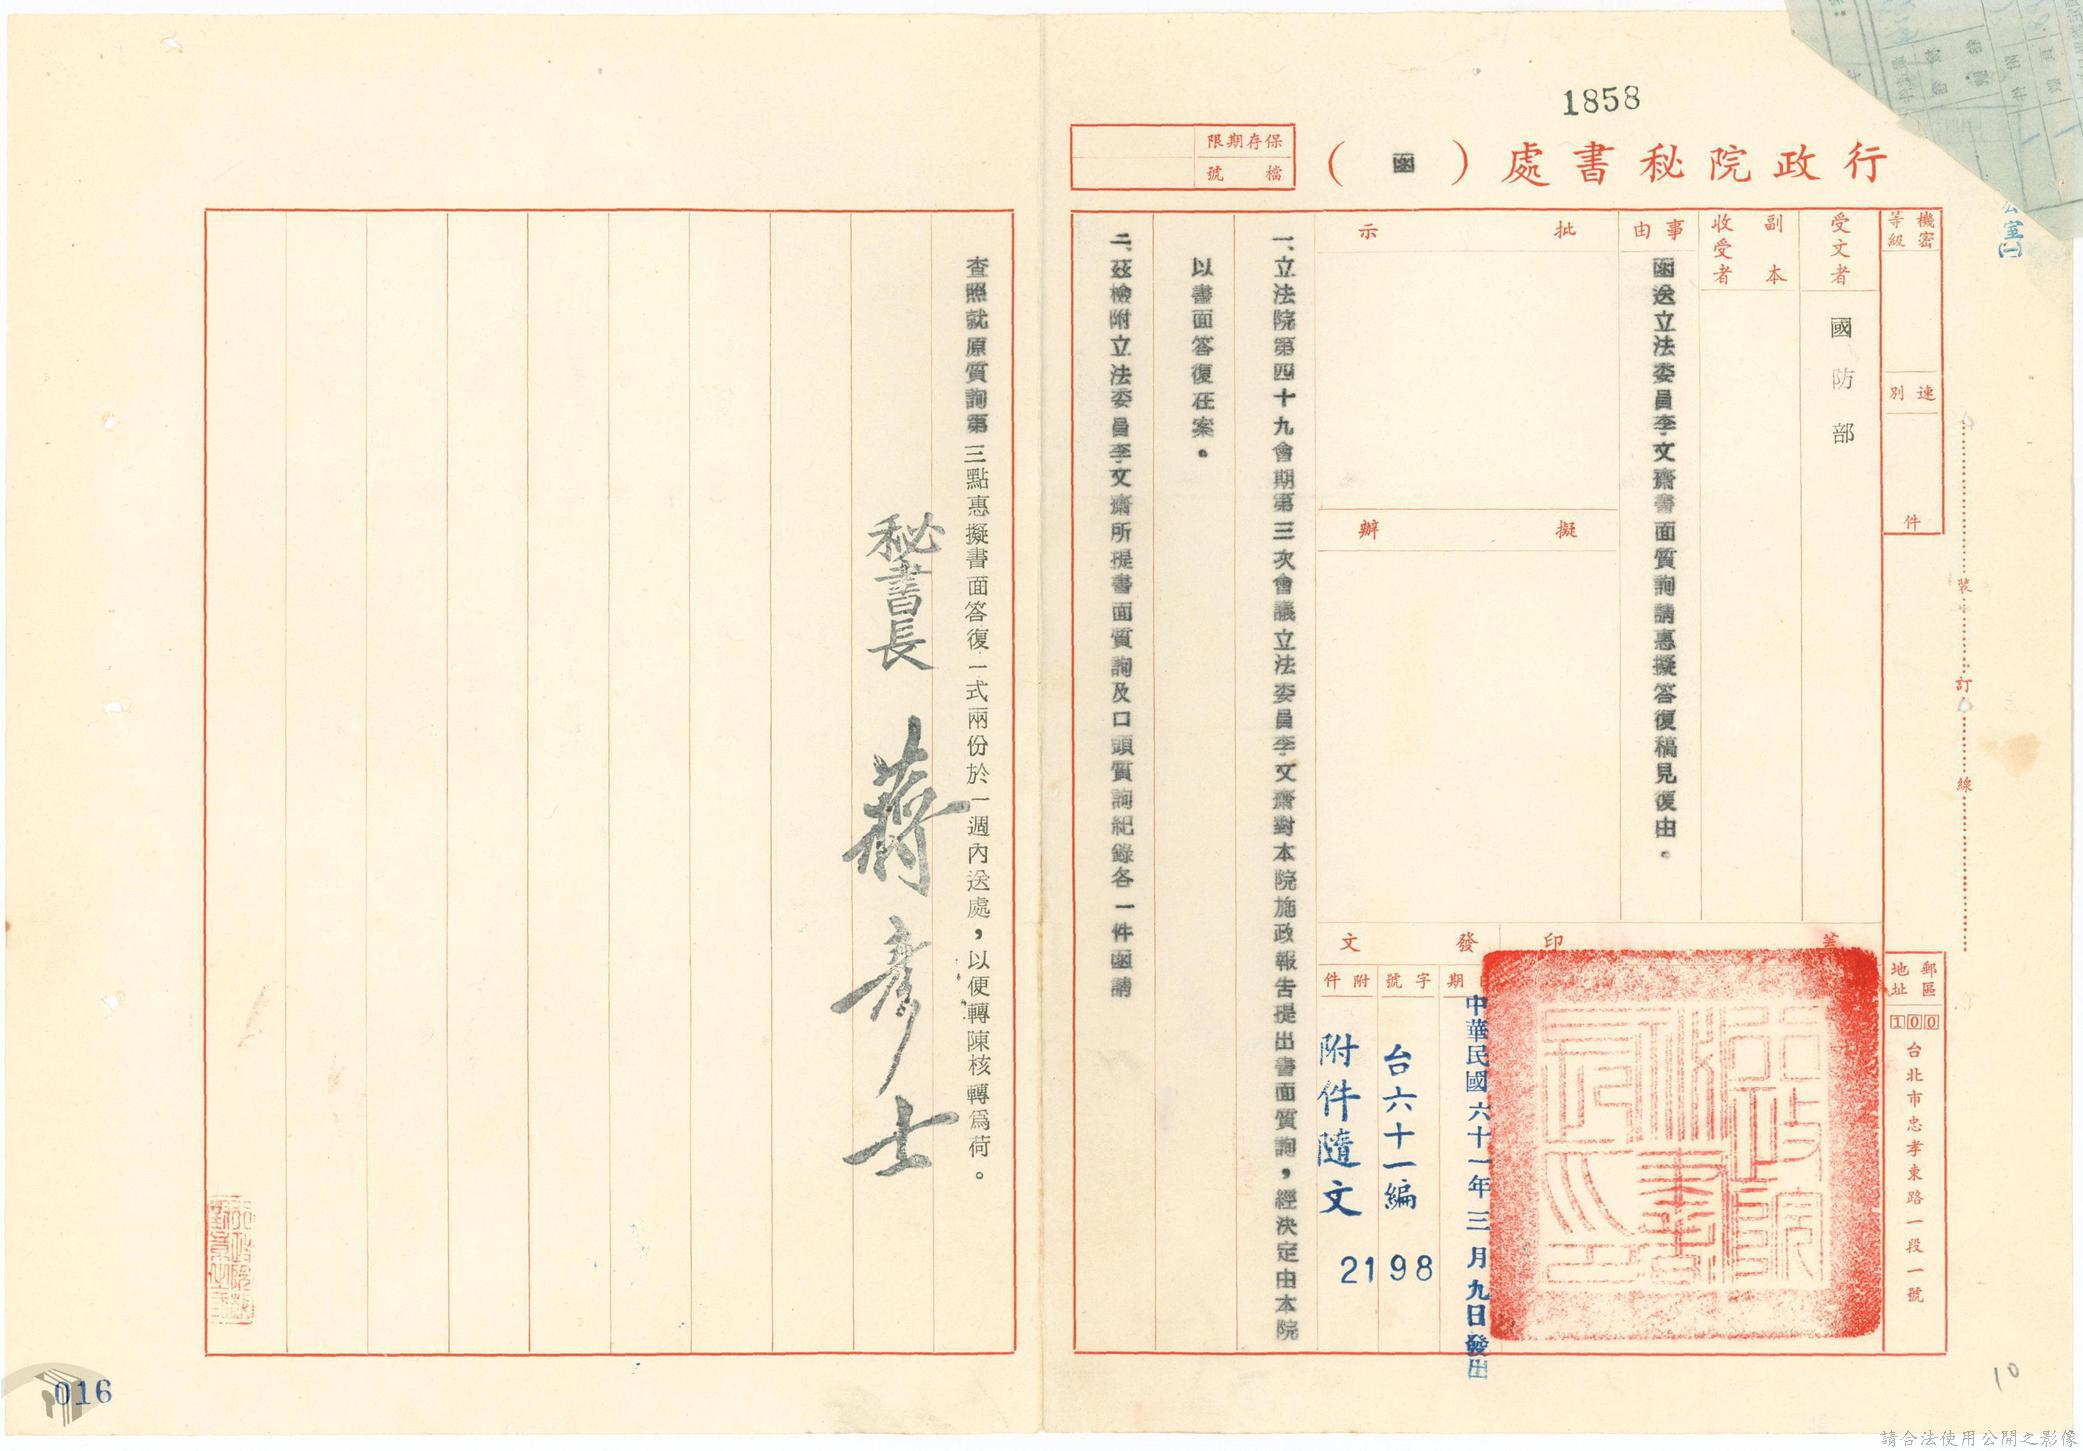 1858
行政院秘書處（函）
保存期限
檔號
機密等級
速別
件
受文者
國防部
副本收受者
事由
函送立法委員李文齋書面質詢請惠擬答復稿見復由。
批示
擬辦
蓋印
發文
日期
中華民國六十一年三月九日發出
字號
台六十一編
2198
附件
附件隨文
郵區地址
100
台北市忠孝東路一段一號
裝
訂
線
一、立法院第四十九會期第三次會議立法委員李文齋對本院施政報告提出書面質詢，經決定由本院
以書面答復在案。
二、茲檢附立法委員李文齋所提書面質詢及口頭質詢紀錄各一件函請
查照就原質詢第三點惠擬書面答復一式兩份於一週內送處，以便轉陳核轉為荷。
秘書長 蔣彥士
016
10
請合法使用公開之影像